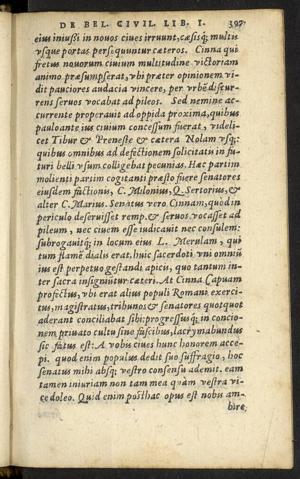 DE BEL. CIVIL. LIB. I. 397
eius iniussi in nouos ciues irruunt, cæsisq; multis
vsque portas persequuntur cæteros. Cinna qui
fretus nouorum ciuium multitudine victoriam
animo præsumpserat, vbi præter opinionem vi-
dit pauciores audacia vincere, per vrbē discur-
rens seruos vocabat ad pileos. Sed nemine ac-
currente properauit ad oppida proxima, quibus
paulo ante ius ciuium concessum fuerat, videli-
cet Tibur & Preneste & cætera Nolam vsq;:
quibus omnibus ad defectionem solicitatis in fu-
turi belli vsum colligebat pecunias. Hæc partim
molienti partim cogitanti præsto fuere senatores
eiusdem factionis, C. Milonius, Q. Sertorius, &
alter C. Marius. Senatus vero Cinnam, quod in
periculo deseruisset remp. & seruos vocasset ad
pileum, nec ciuem esse iudicauit nec consulem:
subrogauitq; in locum eius L. Merulam, qui
tum flamē dialis erat, huic sacerdoti vni omniū
ius est perpetuo gestandi apicis, quo tantum in-
ter sacra insigniūtur cæteri. At Cinna Capuam
profectus, vbi erat alius populi Romani exerci-
tus, magistratus, tribunos & senatores quotquot
aderant conciliabat sibi: progressusq; in concio-
nem priuato cultu sine fascibus, lacrymabundus
sic fatus est: A vobis ciues hunc honorem acce-
pi. quod enim populus dedit suo suffragio, hoc
senatus mihi absq; vestro consensu ademit. eam
tamen iniuriam non tam mea quàm vestra vi-
ce doleo. Quid enim posthac opus est nobis am-
bire